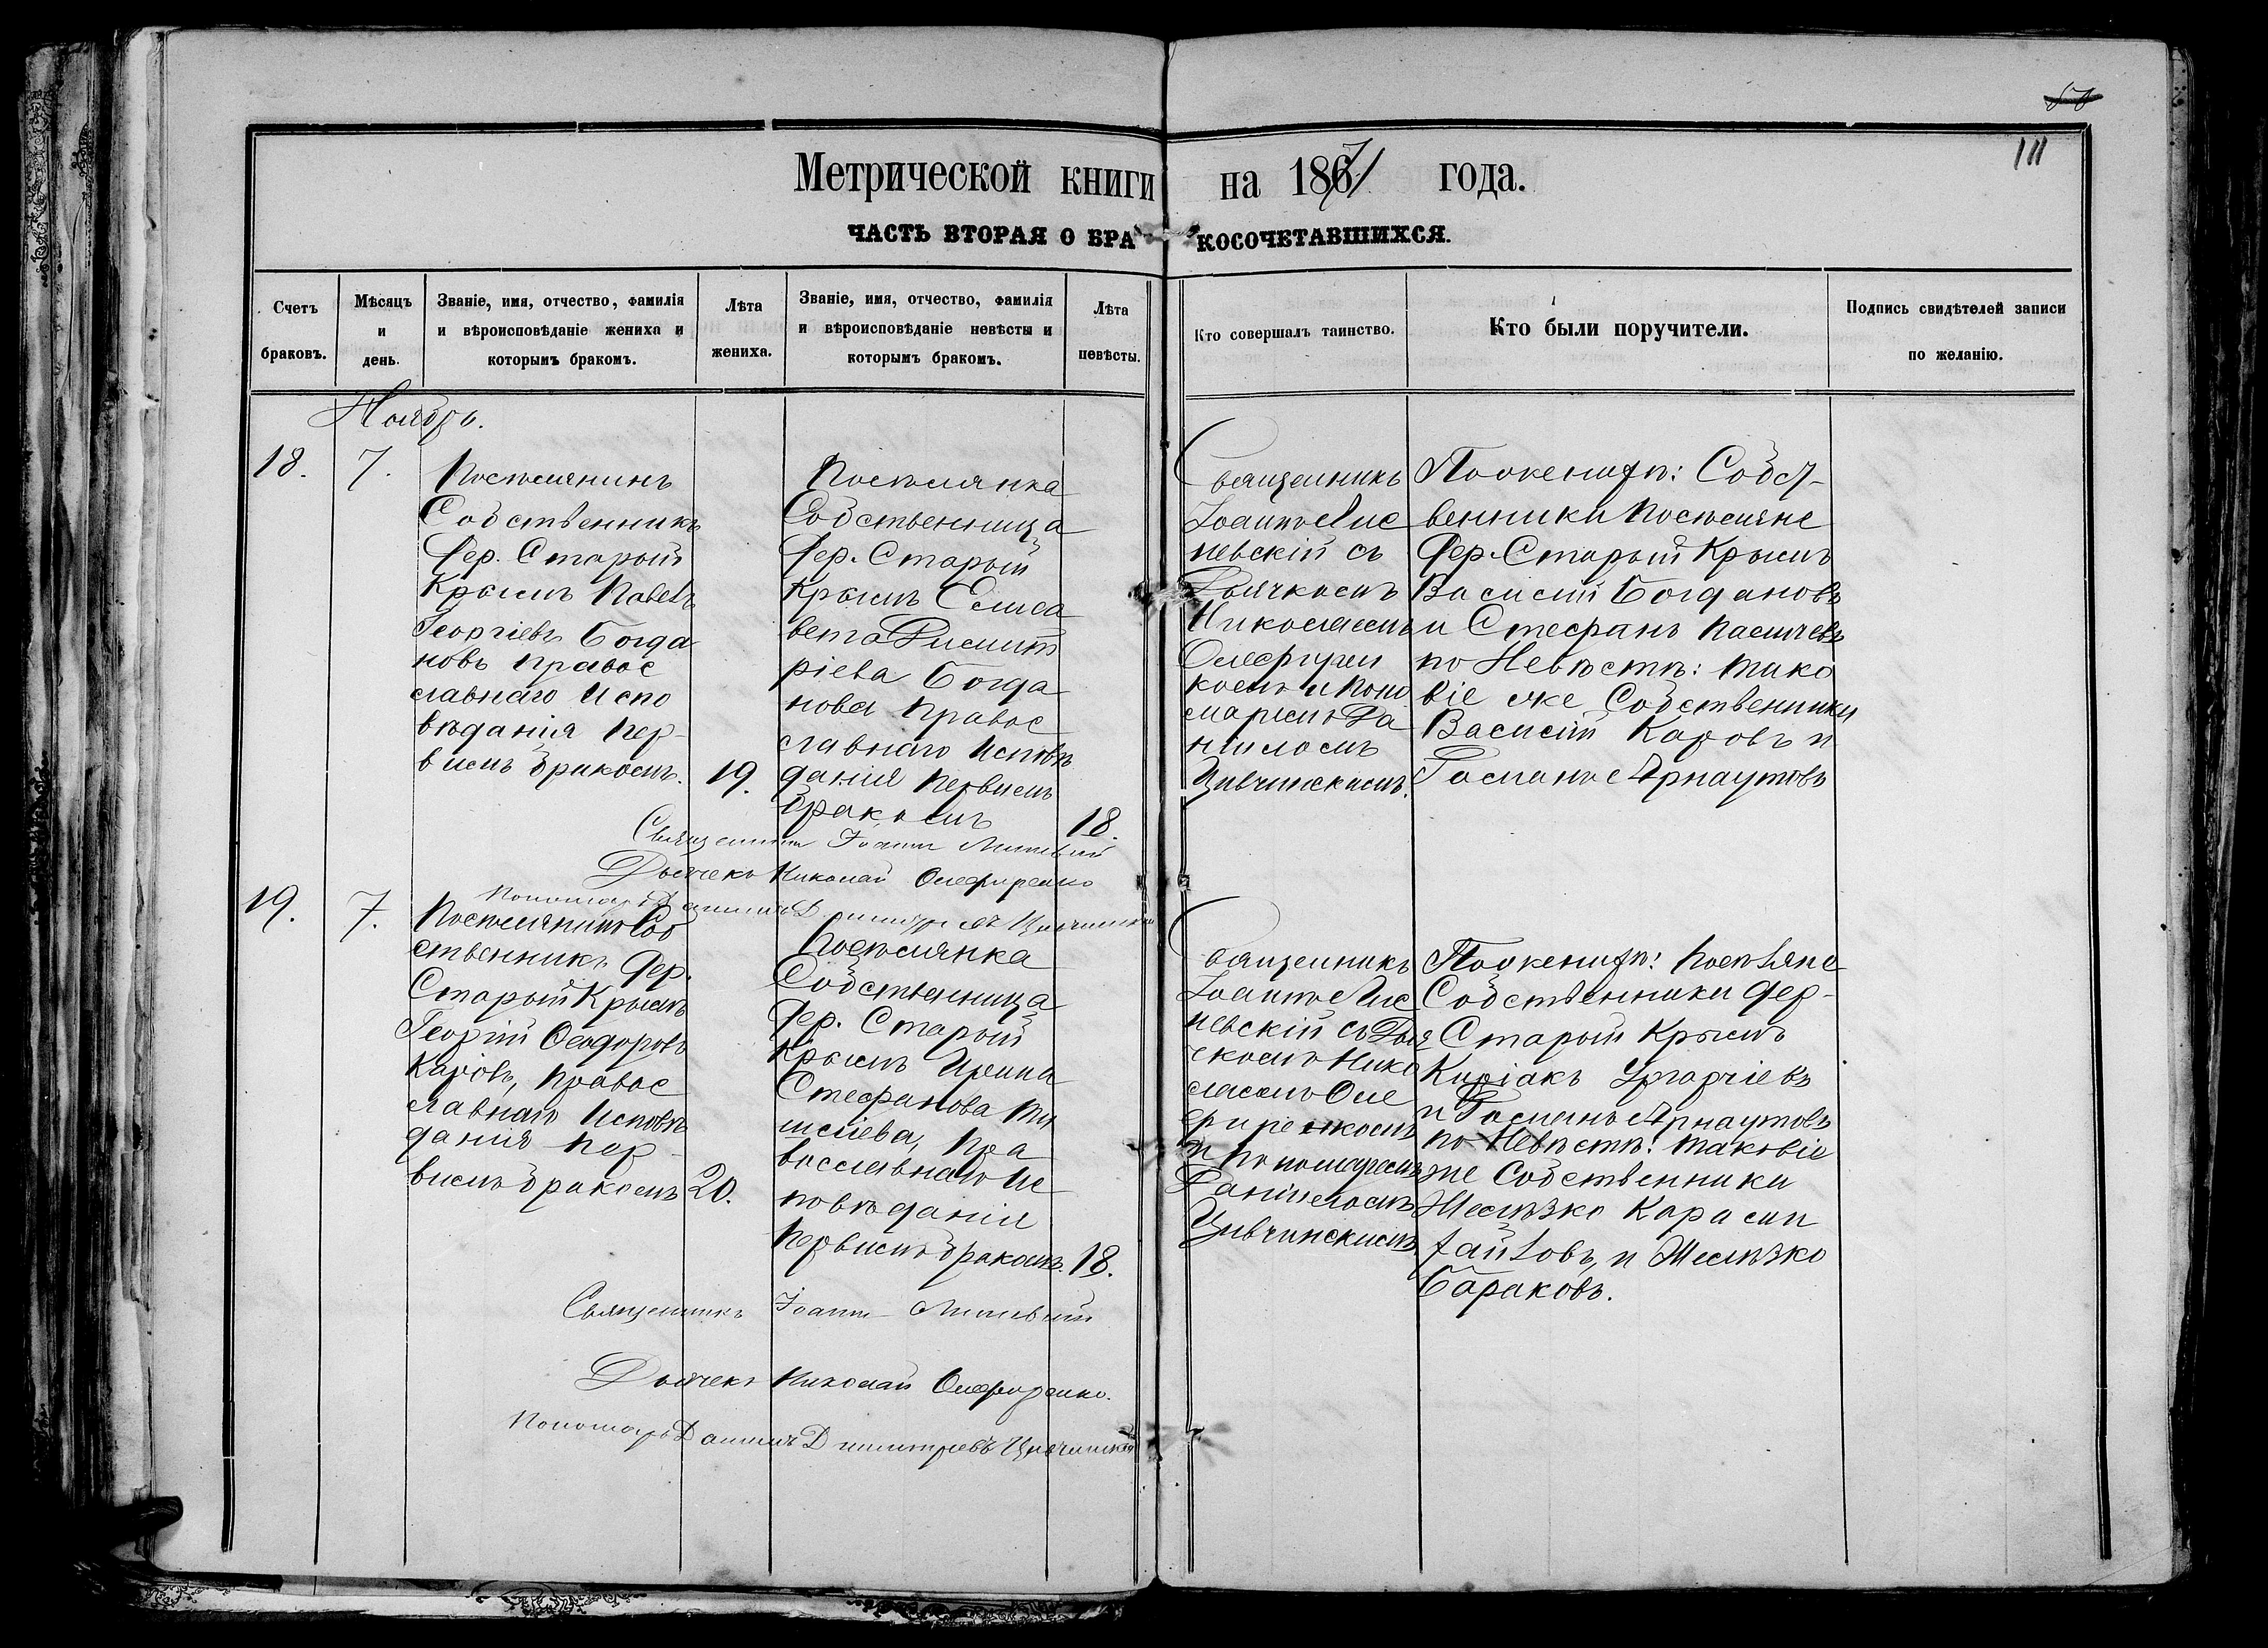 111
Метрической книги на 1871 года.
ЧАСТЬ ВТОРАЯ О БРАКОСОЧЕТАВШИХСЯ.
Счетъ браковъ.
Мѣсяцъ и день.
Званіе, имя, отчество, фамилія и вѣроисповѣданіе жениха и которымъ бракомъ.
Лѣта жениха.
Званіе, имя, отчество, фамилія и вѣроисповѣданіе невѣсты и которымъ бракомъ.
Лѣта невѣсты.
Кто совершалъ таинство.
Кто были поручители.
Подпись свидѣтелей записи по желанію.
Ноябрь.
18.
7.
Поселянинъ
Собственникъ
дер. Старый
Крымъ Павелъ
Георгіевъ Богда
новъ правос
лавнаго испо
вѣданія пер-
вымъ бракомъ.
19.
Поселянка
Собственница
дер. Старый
Крымъ Елиса
вета Димит
ріева Богда
нова правос
лавнаго исповѣ
данія первымъ
бракомъ
18.
Священникъ
Іоаннъ Лис
невскій съ
Дьячкомъ
Николаемъ
Олефирен
комъ и поно
маремъ Да
ніиломъ
Цивчинскимъ.
По женихѣ: Собст-
венники поселяне
дер. Старый Крымъ
Василій Богдановъ
и Стефанъ
по Невѣстѣ: тако
віе же Собственники
Василій Каровъ и
Арнаутовъ
Священникъ Іоаннъ Лисневскій
Дьячекъ Николай Олефиренко
Пономарь Даніилъ Димитріевъ Цивчинскій
19.
7.
Поселянинъ Соб
ственникъ дер.
Старый Крымъ
Георгій Феодоровъ
Каровъ, правос
лавнаго исповѣ
данія пер-
вымъ бракомъ
20.
Поселянка
Собственница
дер. Старый
Крымъ Ирина
Стефанова
пра
вославнаго ис
повѣданія
первымъ бракомъ.
18.
Священникъ
Іоаннъ Лис
невскій съ Дья
чкомъ Нико
лаемъ Оле
фиренкомъ
и пономаремъ
Даніиломъ
Цивчинскимъ.
По женихѣ: поселяне
Собственники дер-
Старый Крымъ
Киріакъ
и Арнаутовъ
по Невѣстѣ: таковіе
же Собственники
Бараковъ.
Священникъ Іоаннъ Лисневскій
Дьячекъ Николай Олефиренко.
Пономарь Даніилъ Димитріевъ Цивчинскій